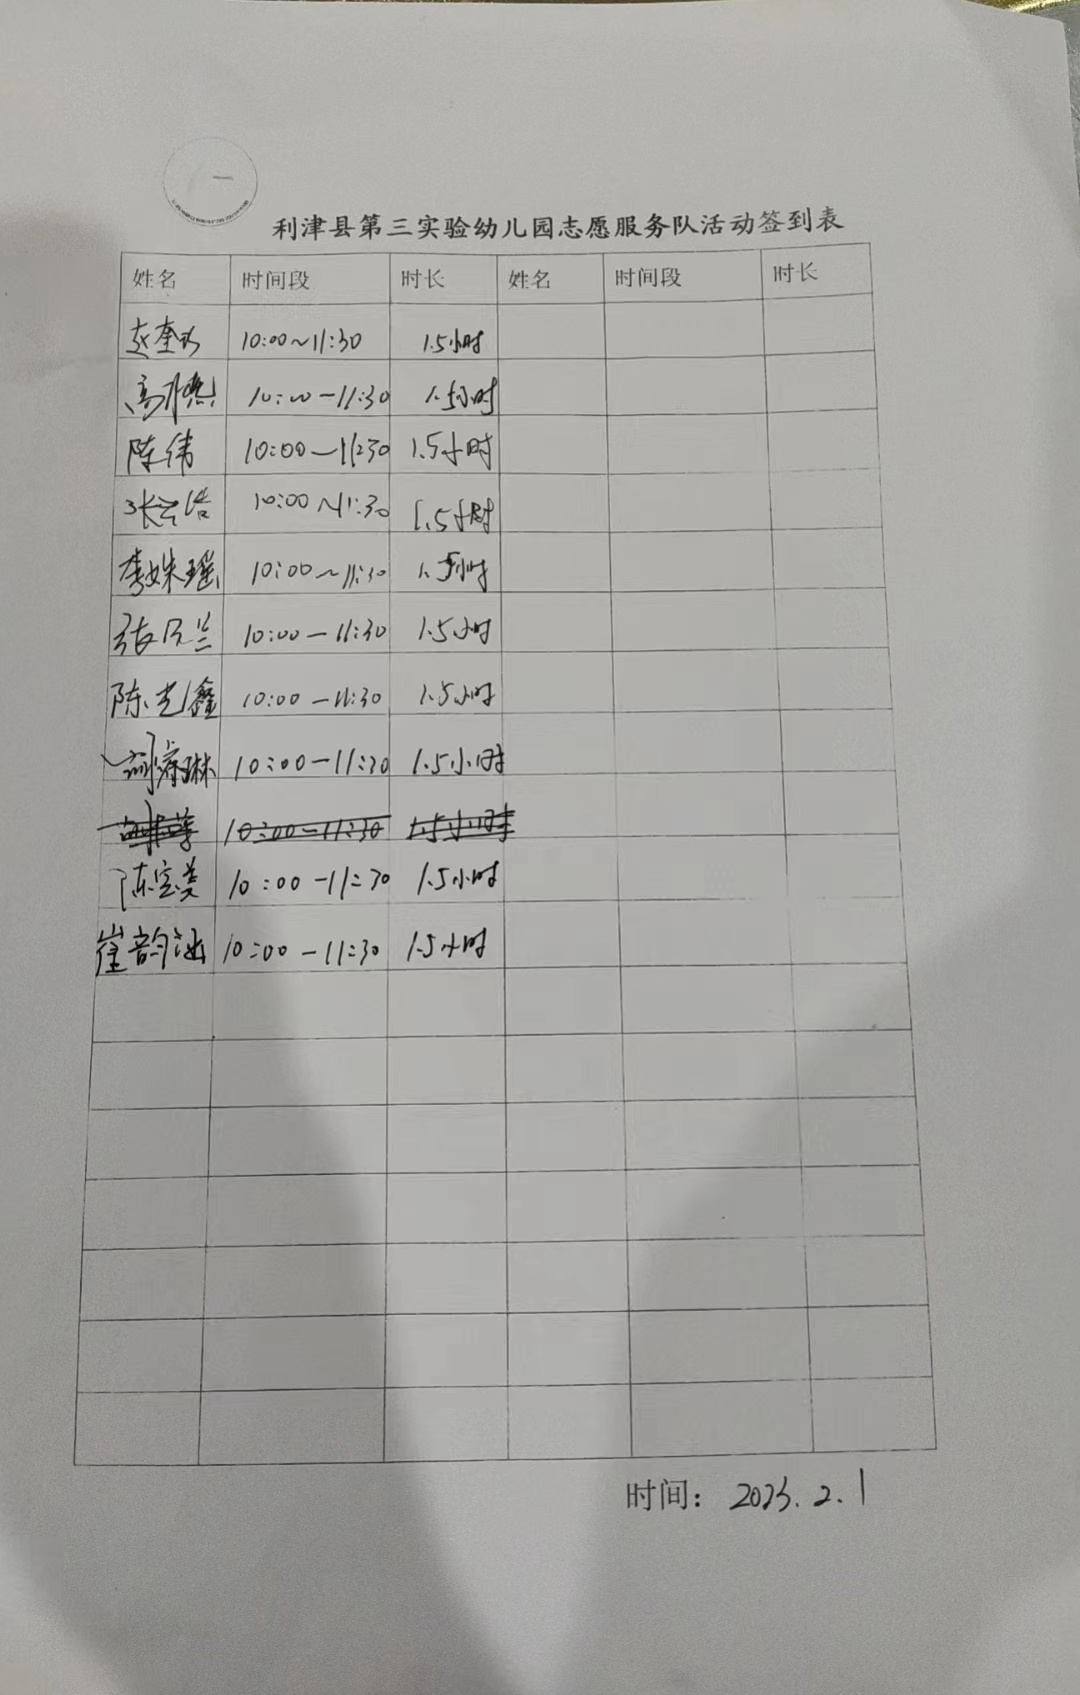 利津县第三实验幼儿园志愿服务队活动签到表
姓名 时间段 时长 姓名 时间段 时长
10:00~11:30 1.5小时
10:00-11:30 1.5小时
陈伟 10:00-11:30 1.5小时
张云浩 10:00~11:30 1.5小时
李姝瑶 10:00~11:30 1.5小时
10:00-11:30 1.5小时
陈光鑫 10:00-11:30 1.5小时
刘睿琳 10:00-11:30 1.5小时
10:00-11:30 1.5小时
陈宝美 10:00-11:30 1.5小时
崔韵涵 10:00-11:30 1.5小时
时间: 2023.2.1